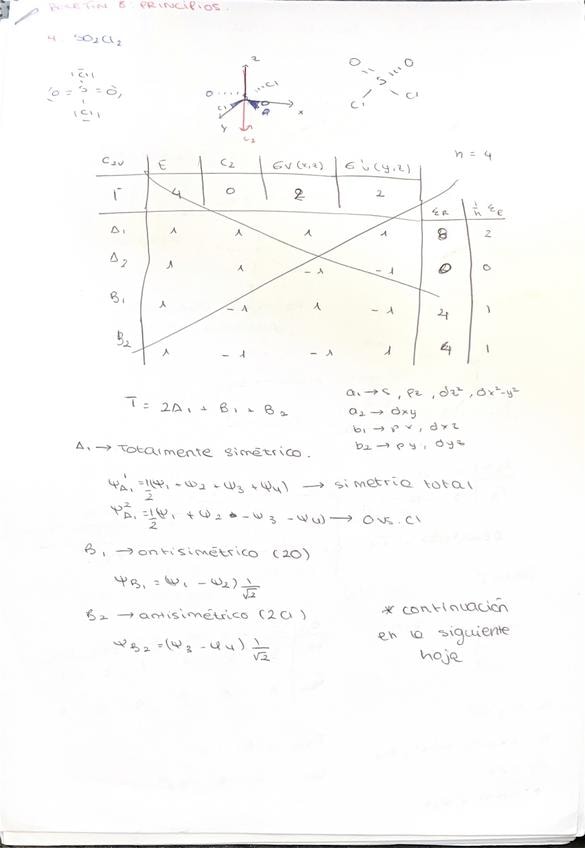 BOLETÍN 8: PRINCIPIOS.
4. SO2Cl2
|Cl|
O = S = O
|Cl|
z
O Cl
Cl O x
y
C2
O O
S
Cl Cl
n = 4
C2v E C2 σv(x,z) σv'(y,z)
Γ 4 0 2 2
ΣR 1/n ΣR
A1 1 1 1 1 8 2
A2 1 1 -1 -1 0 0
B1 1 -1 1 -1 4 1
B2 1 -1 -1 1 4 1
Γ = 2A1 + B1 + B2
a1 → s, pz, dz², dx²-y²
a2 → dxy
b1 → px, dxz
b2 → py, dyz
A1 → Totalmente simétrico.
Ψ¹A1 = 1/2 (Ψ1 + Ψ2 + Ψ3 + Ψ4) → simetria total
Ψ²A1 = 1/2 (Ψ1 + Ψ2 - Ψ3 - Ψ4) → O vs. Cl
B1 → antisimétrico (2O)
ΨB1 = (Ψ1 - Ψ2) 1/√2
B2 → antisimétrico (2Cl)
ΨB2 = (Ψ3 - Ψ4) 1/√2
* continuación
en la siguiente
hoja